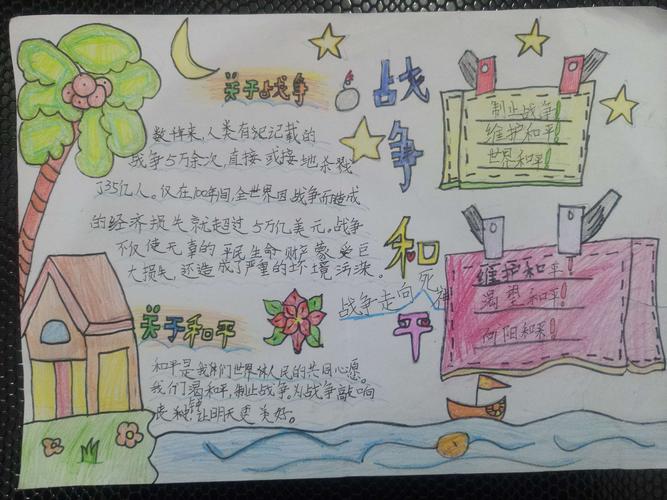 关于战争
数千年来,人类有记记载的
战争5万余次,直接或接地杀戮
了35亿人。仅在100年间,全世界因战争而造成
的经济损失就超过5万亿美元。战争
不仅使无辜的平民生命财产蒙受巨
大损失,还造成了严重的环境污染。
战争和平
战争走向死神
制止战争!
维护和平!
世界和平!
维护和平!
渴望和平!
向阳和平!
关于和平
和平是我们世界人民的共同心愿。
我们渴和平,制止战争。为战争敲响
丧钟,让明天更美好。